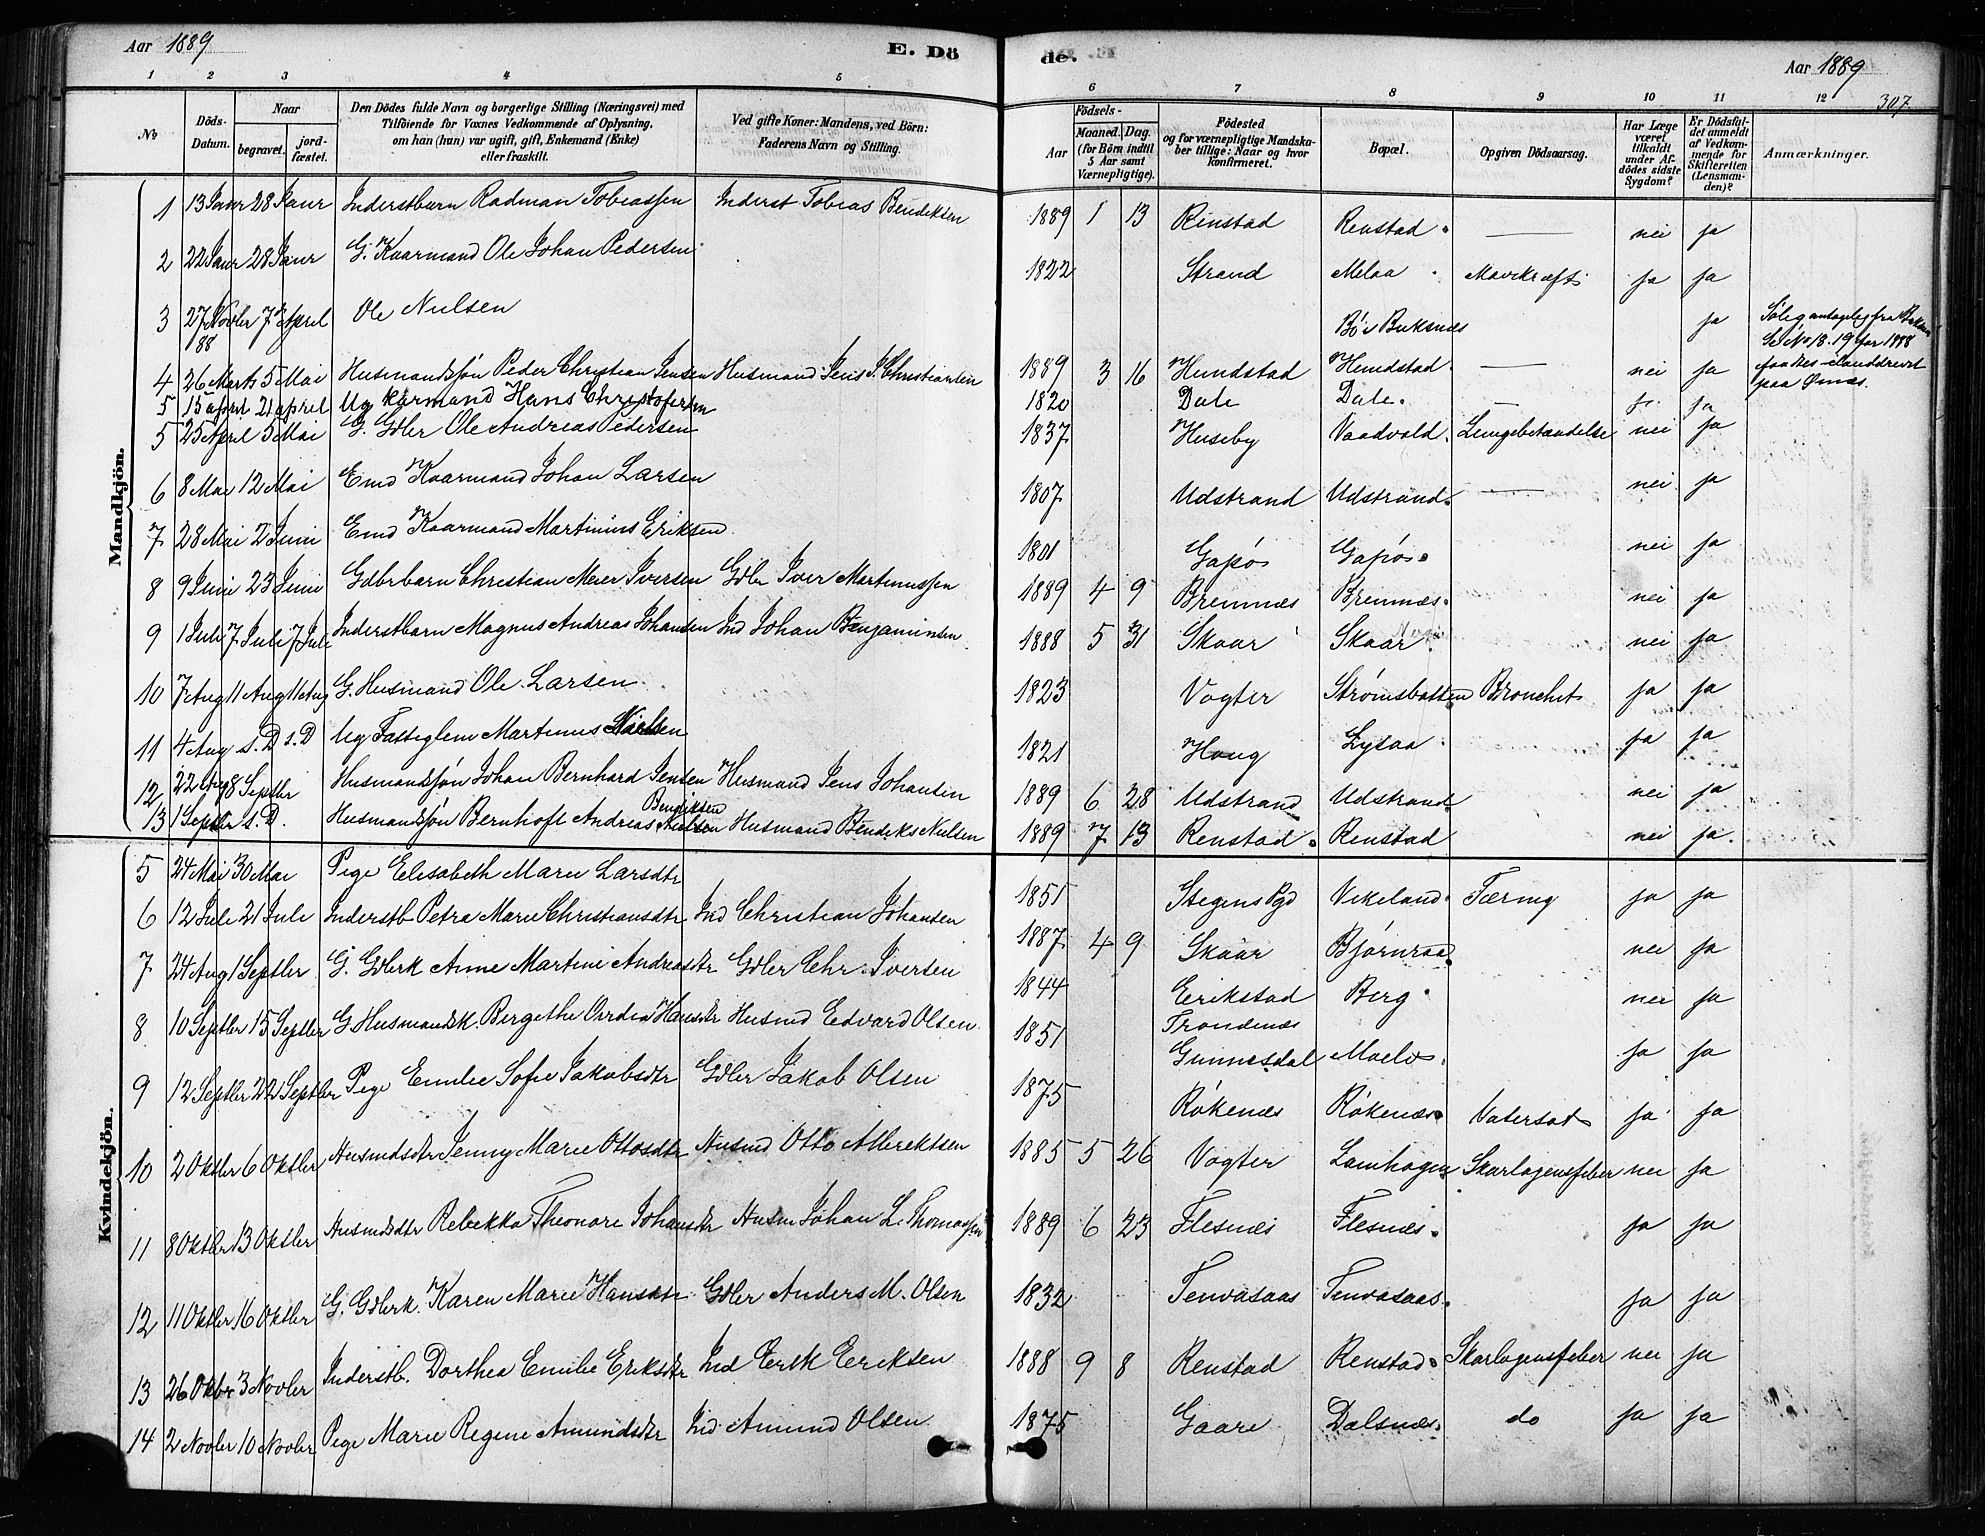 Aar 1889
E. Dö
de.
Aar 1889
307.
1 2 3 4 5 6 7 8 9 10 11 12
No
Döds-Datum.
Naar
begravet.
jord-fæstet.
Den Dödes fulde Navn og borgerlige Stilling (Næringsvei) med
Tilföiende for Voxnes Vedkommende af Oplysning,
om han (hun) var ugift, gift, Enkemand (Enke)
eller fraskilt.
Ved gifte Koner: Mandens, ved Börn:
Faderens Navn og Stilling.
Födsels-
Aar
Maaned. Dag.
(for Börn indtil
5 Aar samt
Værnepligtige).
Födested
og for værnepligtige Mandska-
ber tillige: Naar og hvor
konfirmeret.
Bopæl.
Opgiven Dödsaarsag.
Har Læge
været
tilkaldt
under Af-
dödes sidste
Sygdom?
Er Dödsfal-
det anmeldt
af Vedkom-
mende for
Skifteretten
(Lensman-
den)?
Anmærkninger.
Mandkjön.
1 13 Janr 28 Janr Inderstbarn Radman Tobiassen Inderst Tobias Bendiksen 1889 1 13 Renstad Renstad. — nei ja
2 22 Janr 28 Janr G. Kaarmand Ole Johan Pedersen 1822 Strand Melaa Mavekræft ja ja
3 27 Novbr 88 7 April Ole Nielsen Bö i Buksnæs ja
4 26 Marts 5 Mai Husmandssön Peder Christian Jensen Husmand Jens J. Christiansen 1889 3 16 Hundstad Hundstad. — nei ja
5 15 april 21 april Ug karmand Hans Christofersen 1820 Dale Dale. — ja
5 25 April 5 Mai G. Gdbr Ole Andreas Pedersen 1837 Huseby Vaadvold. Lungebetændelse nei ja
6 8 Mai 12 Mai Emd Kaarmand Johan Larsen 1807 Udstrand Udstrand. — nei ja
7 28 Mai 2 Juni Emd Kaarmand Martinius Eriksen 1801 Gapös Gapös. nei ja
8 9 Juni 23 Juni Gdbrbarn Christian Meier Iversen Gdbr Iver Martinussen 1889 4 9 Bremnæs Bremnæs. nei ja
9 1 Juli 7 Juli 7 Juli Inderstbarn Magnus Andreas Johansen Ind Johan Benjaminsen 1888 5 31 Skaar Skaar nei ja
10 7 Aug 11 Aug 11 Aug G. Husmand Ole Larsen 1823 Vogter Strömsbotten Bronchit ja ja
11 4 Aug s. D s. D Ug Fattiglem Martinus Nielsen 1821 Haug Lysaa ja ja
12 22 Aug 8 Septbr Husmandssön Johan Bernhard Jensen Husmand Jens Johansen 1889 6 28 Udstrand Udstrand. nei ja
13 1 Septbr s. D. Husmandssön Bernhoft Andreas Bendiksen Husmand Bendiks Nielsen 1889 7 13 Renstad. Renstad nei ja.
Kvindekjön.
5 24 Mai 30 Mai Pige Elisabeth Marie Larsdtr 1851 Stegens Pgd Vikeland. Tæring ja ja
6 12 Juli 21 Juli Inderstb Petra Marie Christiansdtr Ind Christian Johansen 1887 4 9 Skaar Björnraa. nei ja
7 24 Aug 1 Septbr G. Gdbrk Anne Martine Andreasdtr Gdbr Chr. Iversen 1844 Erikstad Berg. nei ja
8 10 Septbr 15 Septbr G Husmandsk. Bergethe Hansdtr Husmd Edvard Olsen 1851 Trondenæs
Gunnesdal Maelv. ja ja
9 12 Septbr 22 Septbr Pige Emilie Sofie Jakobsdtr Gdbr Jakob Olsen 1875 Rökenæs Rökenæs. Vatersot ja ja
10 2 Oktbr 6 Oktbr Husmdsdtr Jenny Marie Ottosdtr Husmd Otto Albrektsen 1885 5 26 Vogter Lamhagen Skarlagensfeber nei ja
11 8 Oktbr 13 Oktbr Husmdsdtr Rebekka Theonore Johansdtr Husm Johan L. Thomassen 1889 6 23 Flesnæs Flesnæs. ja ja
12 11 Oktbr 16 Oktbr G. Gdbrk. Karen Marie Hansdtr Gdbr Anders M. Olsen 1832 Tenvasaas Tenvasaas. ja ja
13 26 Oktbr 3 Novbr Inderstb. Dorthea Emilie Eriksdtr Ind Erik Eriksen 1888 9 8 Renstad Renstad. Skarlagensfeber nei ja
14 2 Novbr 10 Novbr Pige Marie Regine Amundsdtr Ind Amund Olsen 1875 Gaare Dalsnæs. do ja ja